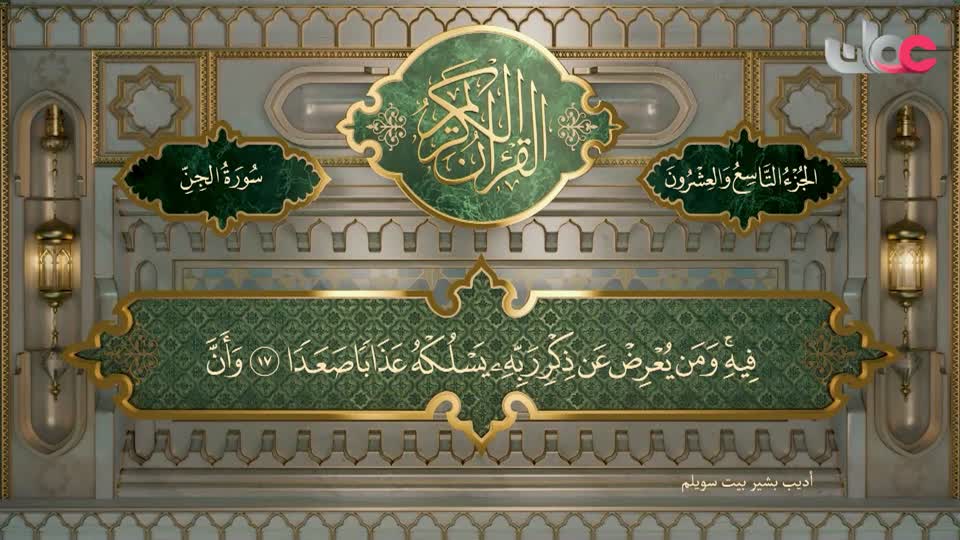 عمان
القرآن الكريم
الجُزْءُ التَّاسِعُ وَالعِشْرُونَ
سُورَةُ الجِنِّ
فِيهِۚ وَمَن يُعْرِضْ عَن ذِكْرِ رَبِّهِۦ يَسْلُكْهُ عَذَابًا صَعَدًا ۝١٧ وَأَنَّ
أديب بشير بيت سويلم